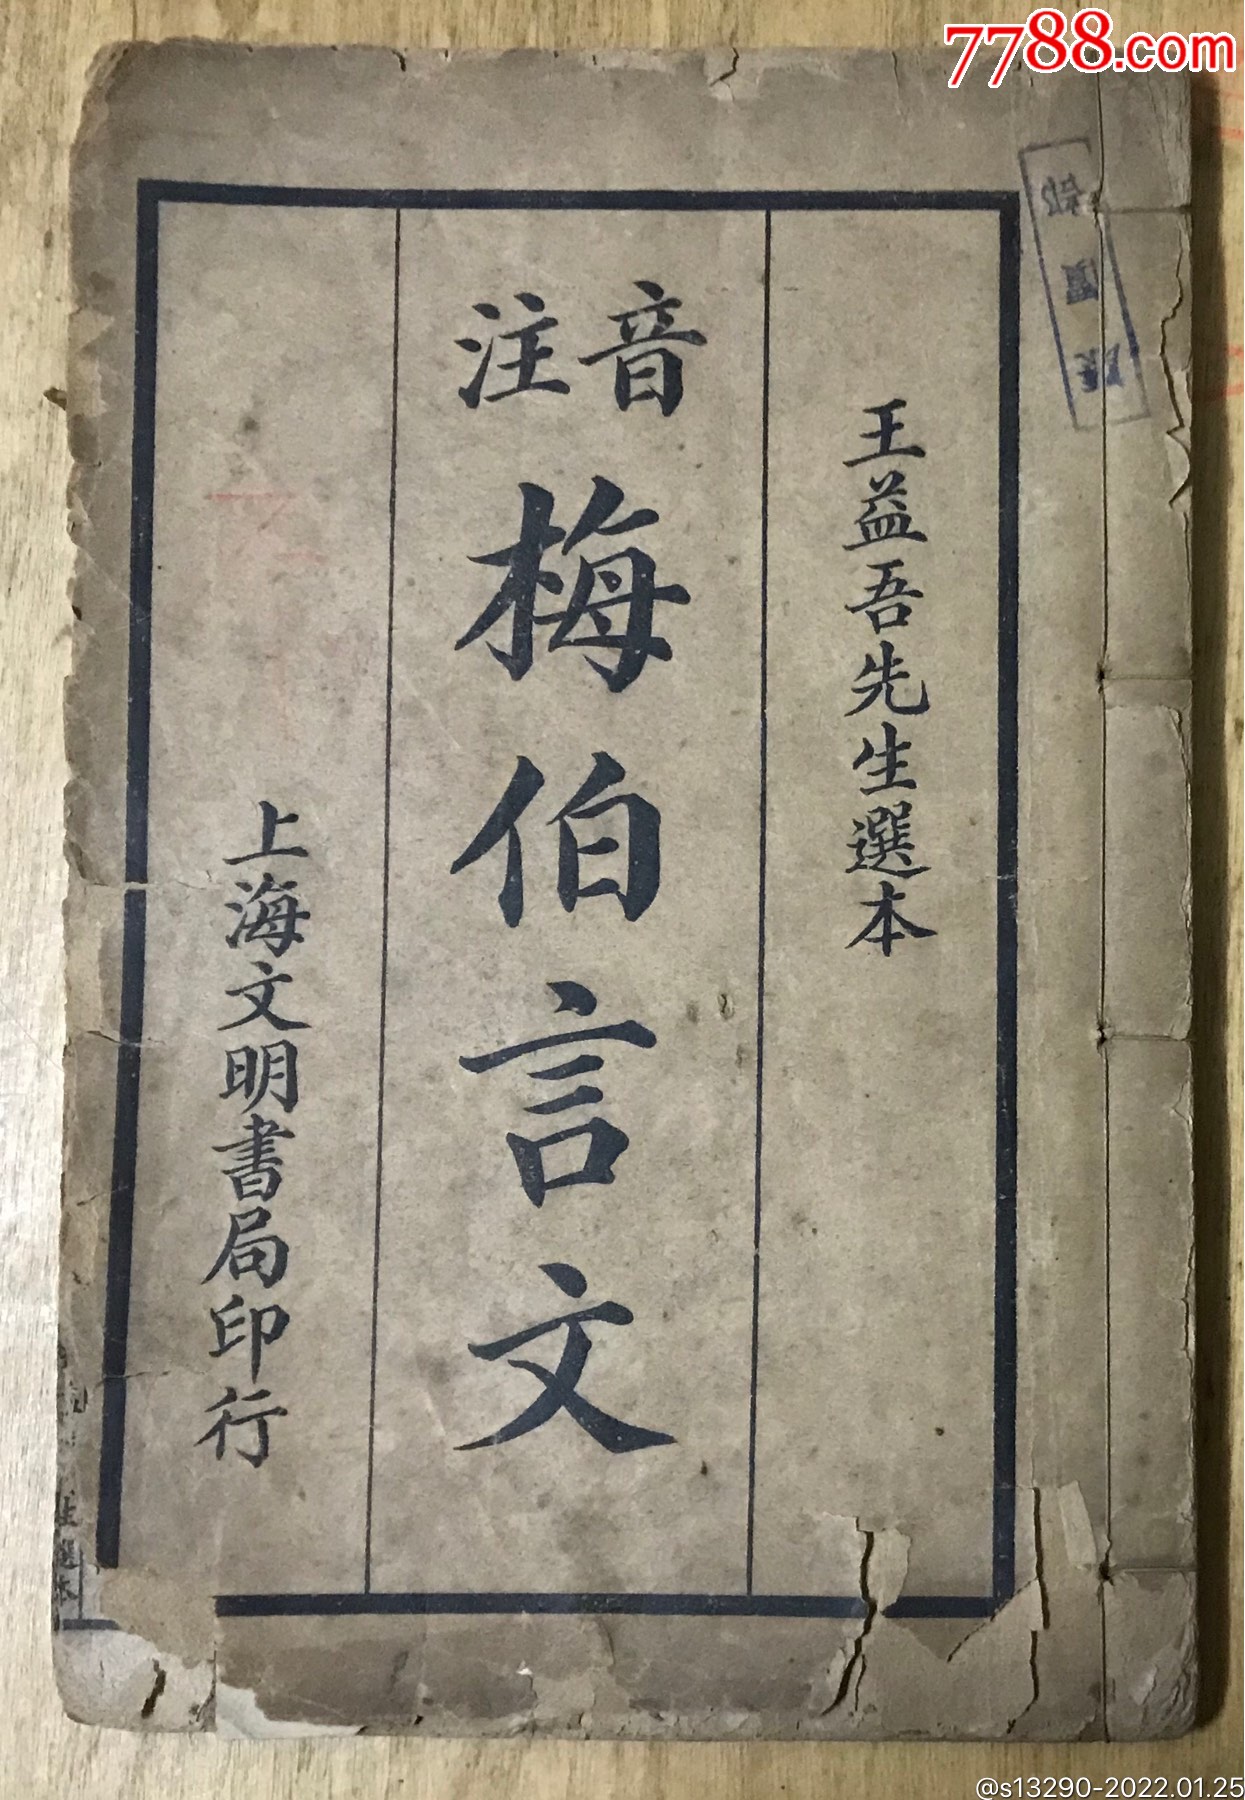 7788.com
王益吾先生選本
音注
梅伯言文
上海文明書局印行
生選本
@s13290-2022.01.25